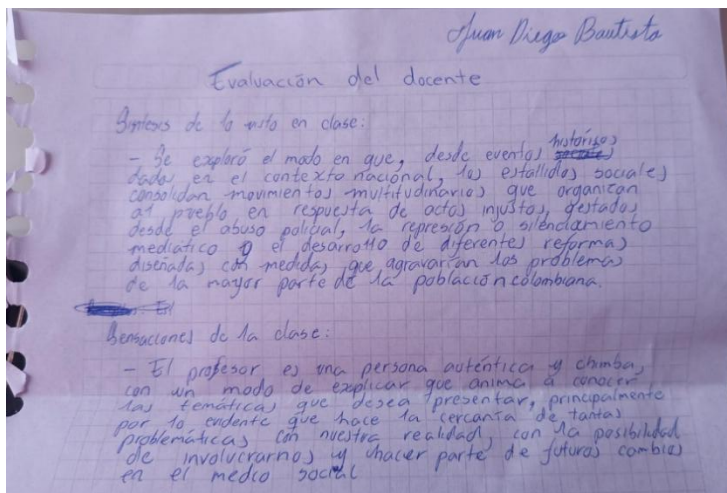 Juan Diego Bautista
Evaluación del docente
Síntesis de lo visto en clase:
- Se exploró el modo en que, desde eventos históricos
dados en el contexto nacional, los estallidos sociales
consolidan movimientos multitudinarios que organizan
al pueblo en respuesta de actos injustos, gestados
desde el abuso policial, la represión o silenciamiento
mediático y el desarrollo de diferentes reformas
diseñadas con medidas que agravarían los problemas
de la mayor parte de la población colombiana.
Sensaciones de la clase:
- El profesor es una persona auténtica y chimba,
con un modo de explicar que anima a conocer
las temáticas que desea presentar, principalmente
por lo evidente que hace la cercanía de tantas
problemáticas con nuestra realidad, con la posibilidad
de involucrarnos y hacer parte de futuros cambios
en el medio social